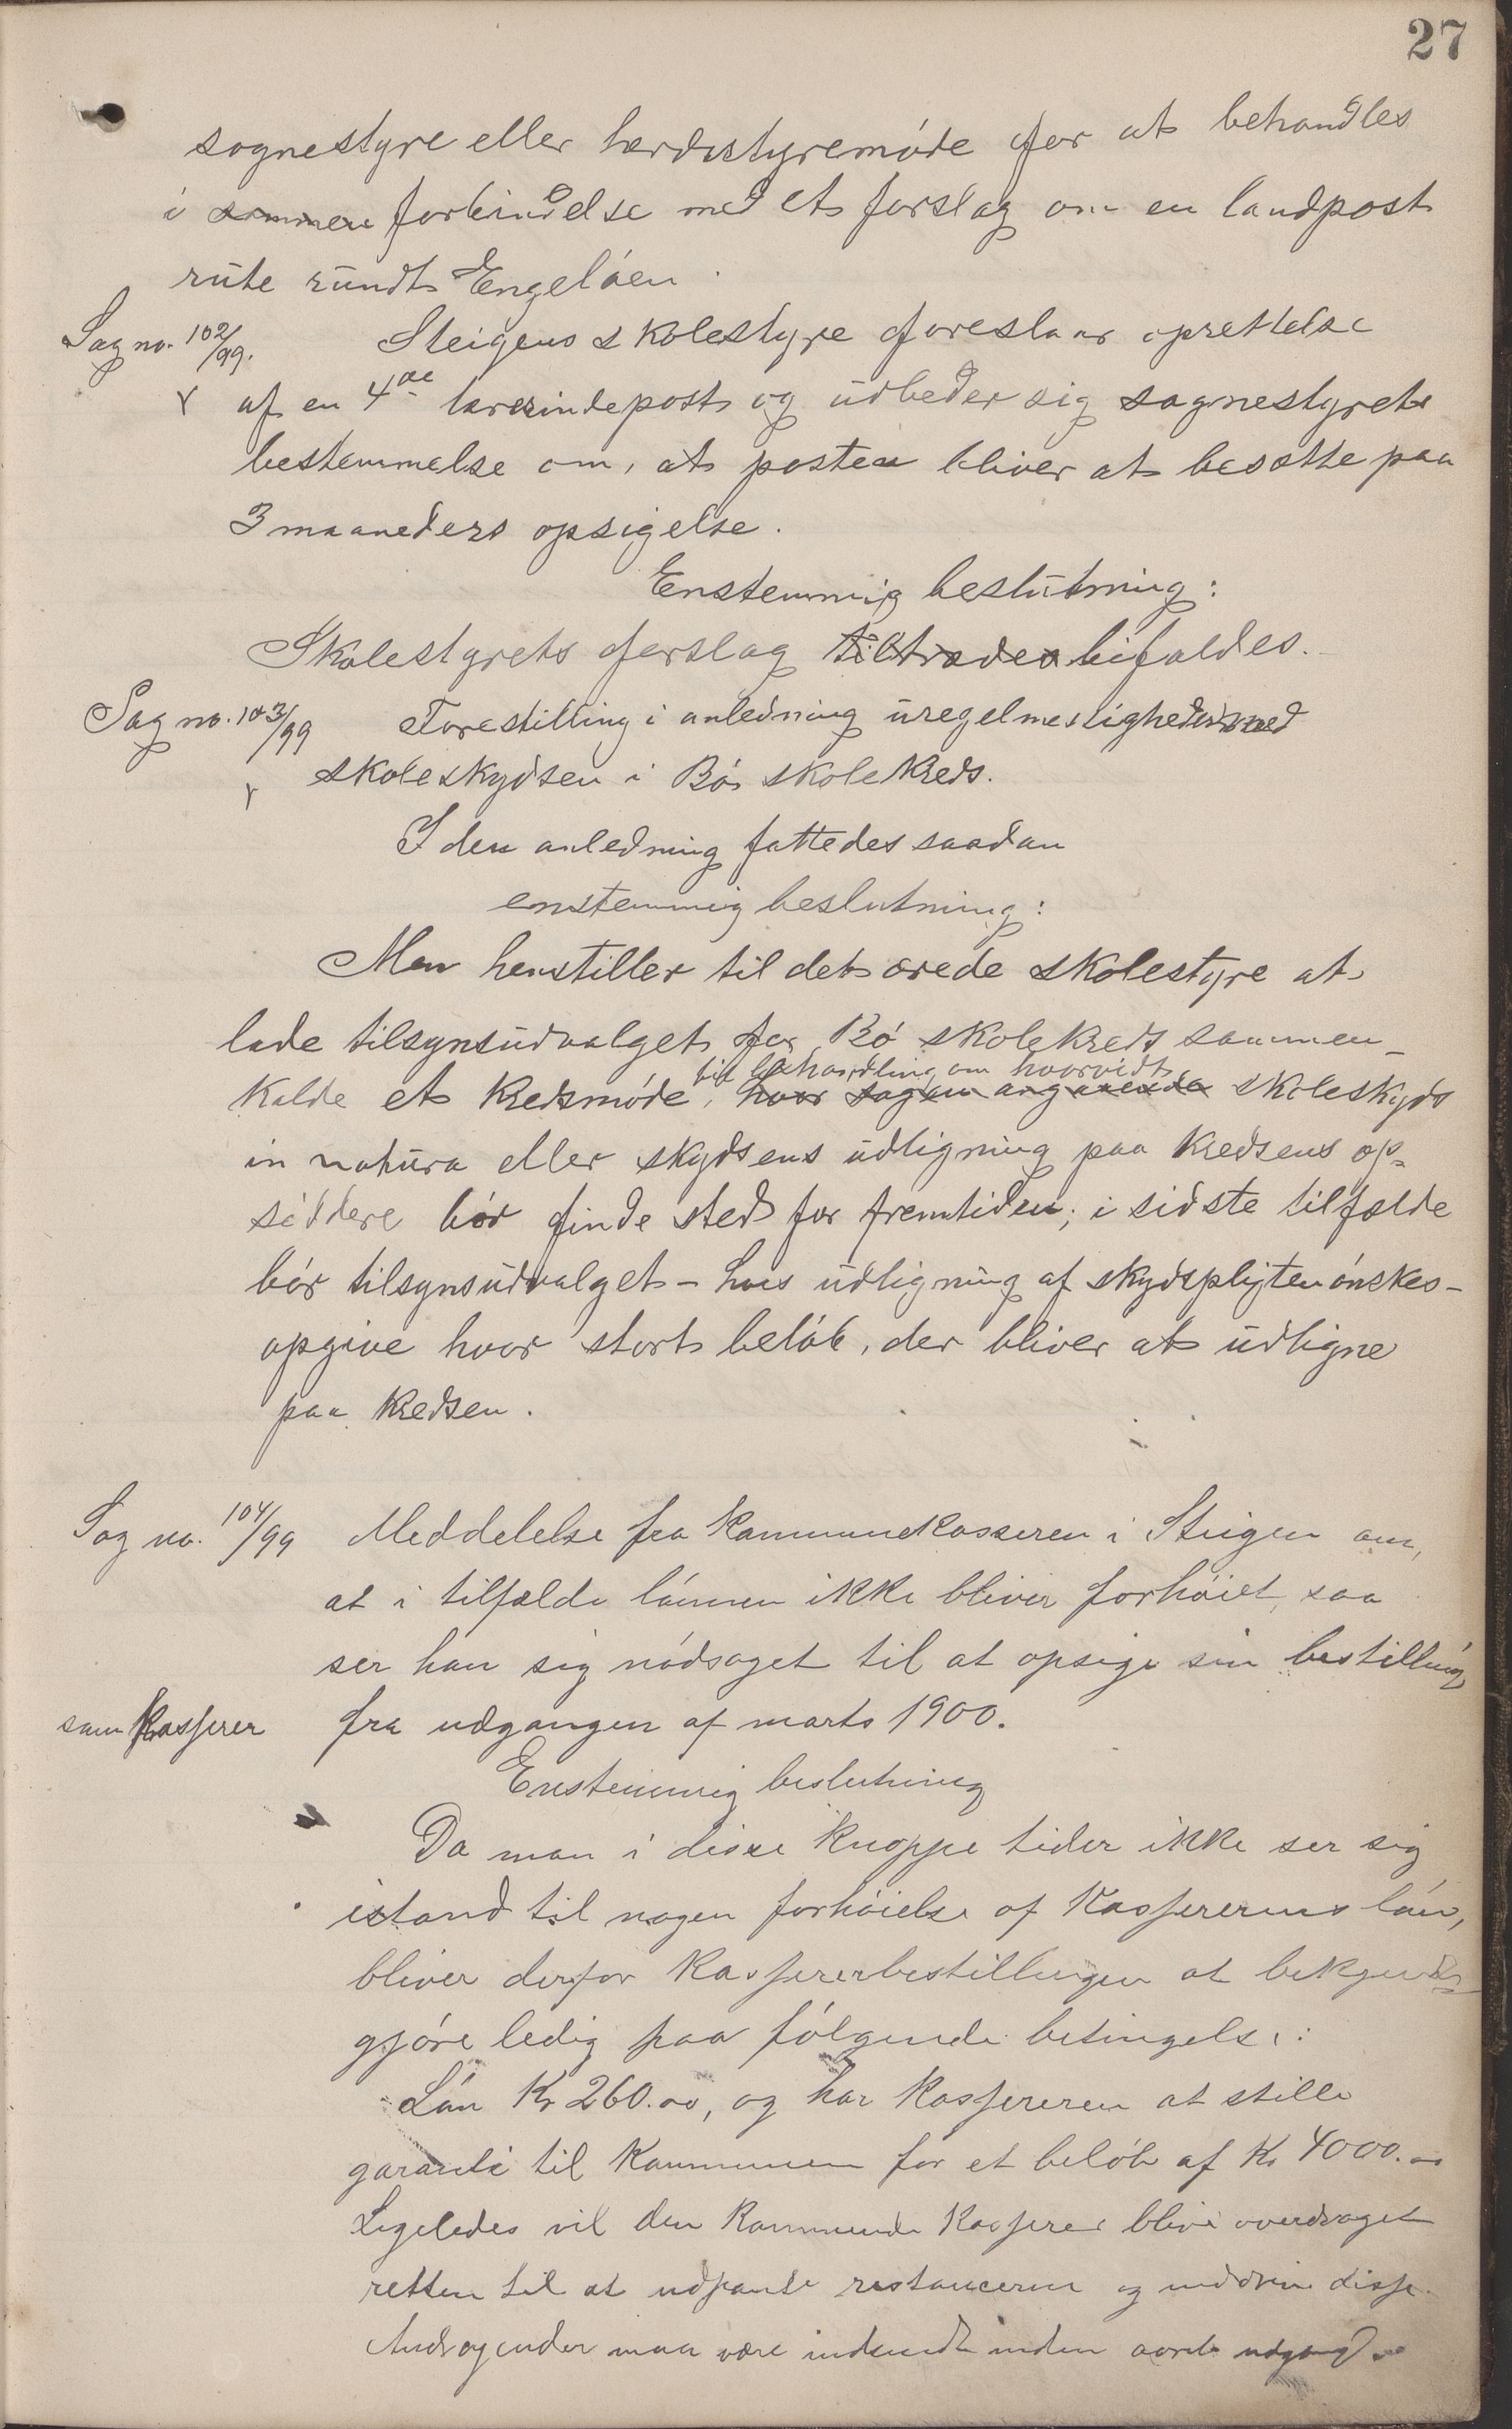 27
sognestyre eller herdsstyremóde for at behandles
i sammen forbindelse med et forslag om en landpost
rute rundt Engelóen.
Sag no. 102/99. Steigens skolestyre foreslaar oprettelse
af en 4de lærerindepost og udbeder sig sognestyrets
bestemmelse om, at posten bliver at besætte paa
3 maaneders opsigelse.
Enstemmig beslutning:
Skolestyrets forslag tiltrædes bifaldes.
Sag no. 103/99 Forestilling i anledning uregelmessigheder med
skoleskydsen i Bó skolekreds.
I den anledning fattedes saadan
enstemmig beslutning:
Man henstiller til det ærede skolestyre at
lade tilsynsudvalget for Bó skolekreds sammen-
til behandling om hvorvidt
kalde et kredsmóde, hvor sagen angaaende skoleskyds
in natura eller skydsens udligning paa kredsens op-
siddere bór finde sted for fremtiden; i sidste tilfælde
bór tilsynsudvalget - hvis udligning af skydspligten ónskes -
opgive hvor stort belób, der bliver at udligne
paa kredsen.
Sag no. 104/99 Meddelelse fra kommunekasseren i Steigen om,
at i tilfælde lónnen ikke bliver forhóiet, saa
ser han sig nódsaget til at opsige sin bestilling
som kasserer fra udgangen af marts 1900.
Enstemmig beslutning
Da man i disse knappe tider ikke ser sig
istand til nogen forhóielse af kassererens lón,
bliver derfor kassererbestillingen at bekjendt-
gjóre ledig paa fólgende betingelse:
Lón Kr 260.00, og har kassereren at stille
garanti til kommunen for et belób af Kr 4000.00
Ligeledes vil den kommende kasserer blive overdraget
retten til at udpante restancerne og inddrive disse.
Andragender maa være indsendt inden aarets udgang.